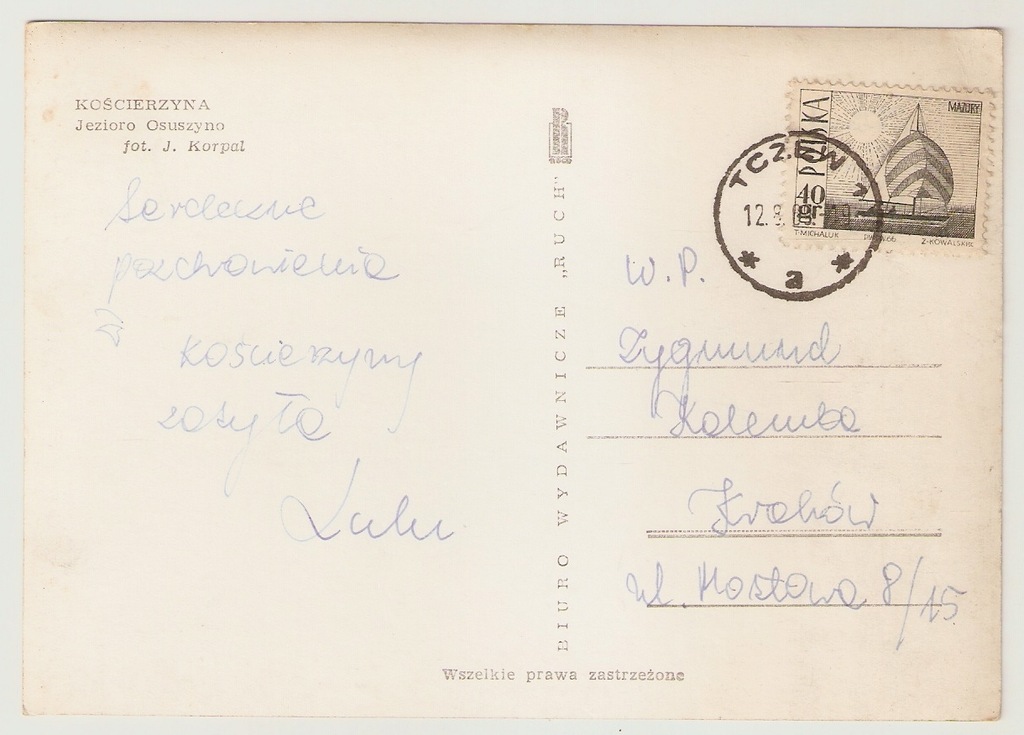 KOŚCIERZYNA
Jezioro Osuszyno
fot. J. Korpal
Serdeczne
pozdrowienia
z
Kościerzyny
zasyła
BIURO WYDAWNICZE „RUCH”
MAZURY
POLSKA
40
gr
T·MICHALUK PWPW·66 Z·KOWALSKI
TCZEW 2
12.8.
a
W.P.
Zygmund
Kalemba
Kraków
ul. Mostowa 8/15
Wszelkie prawa zastrzeżone